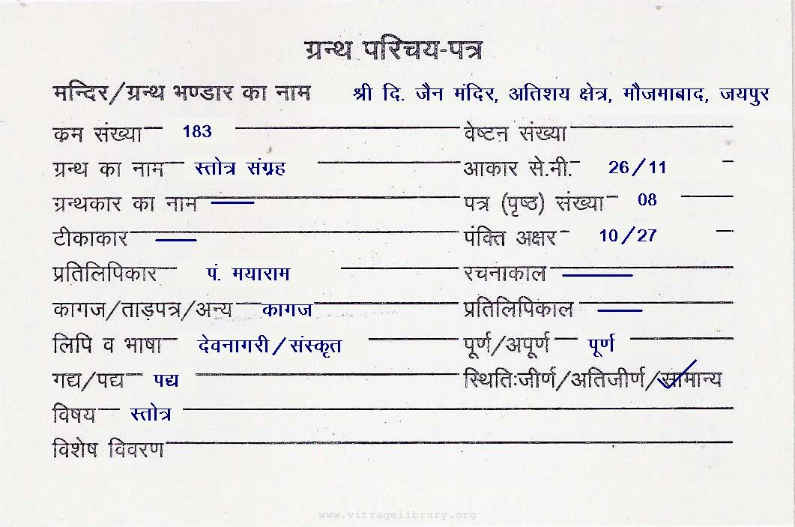 ग्रन्थ परिचय-पत्र
मन्दिर/ग्रन्थ भण्डार का नाम श्री दि. जैन मंदिर, अतिशय क्षेत्र, मौजमाबाद, जयपुर
कम संख्या 183 वेष्टन संख्या
ग्रन्थ का नाम स्तोत्र संग्रह आकार से.नी. 26/11
ग्रन्थकार का नाम — पत्र (पृष्ठ) संख्या 08
टीकाकार — पंक्ति अक्षर 10/27
प्रतिलिपिकार पं. मयाराम रचनाकाल —
कागज/ताड़पत्र/अन्य कागज प्रतिलिपिकाल —
लिपि व भाषा देवनागरी/संस्कृत पूर्ण/अपूर्ण पूर्ण
गद्य/पद्य पद्य स्थितिःजीर्ण/अतिजीर्ण/सामान्य
विषय स्तोत्र
विशेष विवरण
www.vitragelibrary.org